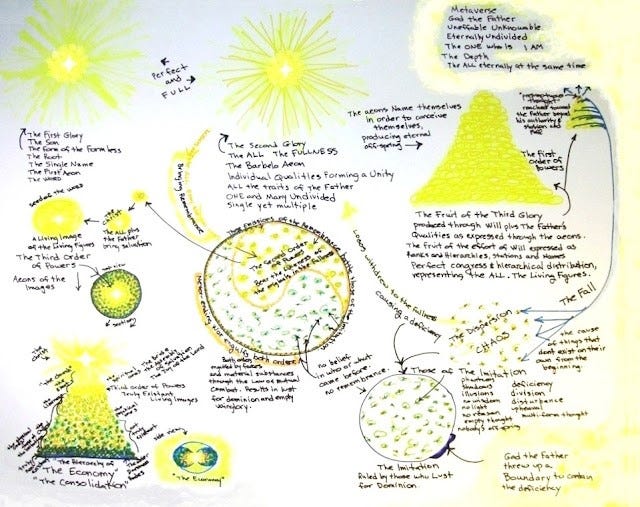 Metaverse
God the Father
Uneffable Unknowable
Eternally Undivided
The ONE who is I AM
The Depth
The ALL eternally at the same time
Perfect
and
FULL
The First Glory
The Son
The Form of the Formless
The Root
The Single Name
The First Aeon
The Word
The Second Glory
The ALL The FULLNESS
The Barbelo Aeon
Individual Qualities Forming a Unity
ALL the traits of the Father
ONE and Many Undivided
Single yet multiple
The aeons Name themselves
in order to conceive
themselves,
producing eternal
off-spring
thought
reached toward
the Father beyond
his authority &
station and
Fell
The First
Order of
Powers
The Fruit of the Third Glory
produced through Will plus The Father's
Qualities as expressed through the aeons.
The Fruit of the effort of Will expressed as
Ranks and Hierarchies, Stations and Names
Perfect congress & hierarchical distribution,
representing the ALL. The Living Figures.
The Fall
Seed of the Word
A Living Image
of the Living Figures
The ALL plus
the Father
bring salvation
The Third Order
of Powers
Aeons of the
Images
Bringing Remembrance
The Second Order
of Powers
Bear the
Logos withdrew to the fullness
causing a deficiency
The Dispersion
CHAOS
the cause
of things that
dont exist on their
own from the
beginning.
no belief
in who or what
came before
no remembrance.
Both orders
and material substances
through the Law of Mutual
Combat. Results in lust
for dominion and empty
vainglory.
Those of The Imitation
phantoms
shadows
illusions
no wisdom
no light
no reason
empty thought
nobody's offspring
deficiency
division
disturbance
upheaval
multi-form thought
The Imitation
Ruled by those who Lust
for Dominion
God the Father
threw up a
Boundary to contain
the deficiency
Third Order of Powers
Truly Existent
Living Images
The Hierarchy of
"The Economy"
"The Consolidation"
side view
"The Economy"